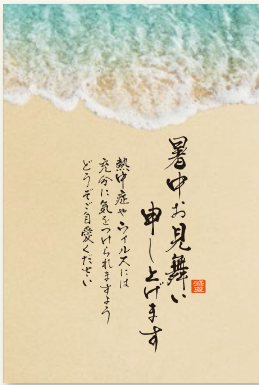 暑中お見舞い
申し上げます
熱中症やウイルスには
充分に気をつけられますよう
どうぞご自愛ください